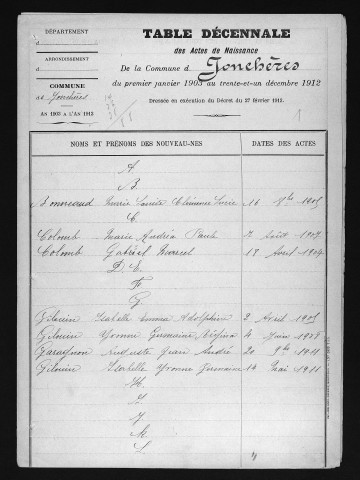 DÉPARTEMENT
d
ARRONDISSEMENT
d
COMMUNE
de Jonchères
AN 1903 A L'AN 1912
TABLE DÉCENNALE
des Actes de Naissance
De la Commune d Jonchères
du premier janvier 1903 au trente-et-un décembre 1912
Dressée en exécution du Décret du 27 février 1912.
NOMS ET PRÉNOMS DES NOUVEAU-NÉS DATES DES ACTES
A
B
Bonneaud Marie Louise Clémence 16 9bre 1905
C
Colomb Marie Andréa Paule 7 Août 1907
Colomb Gabriel Marcel 18 Avril 1904
D. E.
F
G
Gilouin Isabelle Emma Adolphine 2 Avril 1905
Gilouin Yvonne Germaine 4 Juin 1908
Garagnon Auguste Jean André 20 9bre 1911
Gilouin Isabelle Yvonne Germaine 14 Mai 1911
H
I
J
K
L